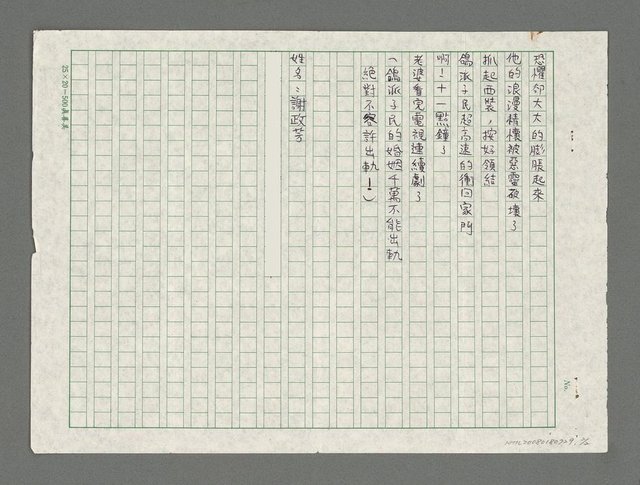 恐懼卻大大的膨脹起來
他的浪漫情懷被惡靈破壞了
抓起西裝，按好領結
鴿派子民超高速的衝回家門
啊！十一點鐘了
老婆看完電視連續劇了
（鴿派子民的婚姻千萬不能出軌
絕對不容許出軌！）
姓名：謝政芳
25×20=500
No.